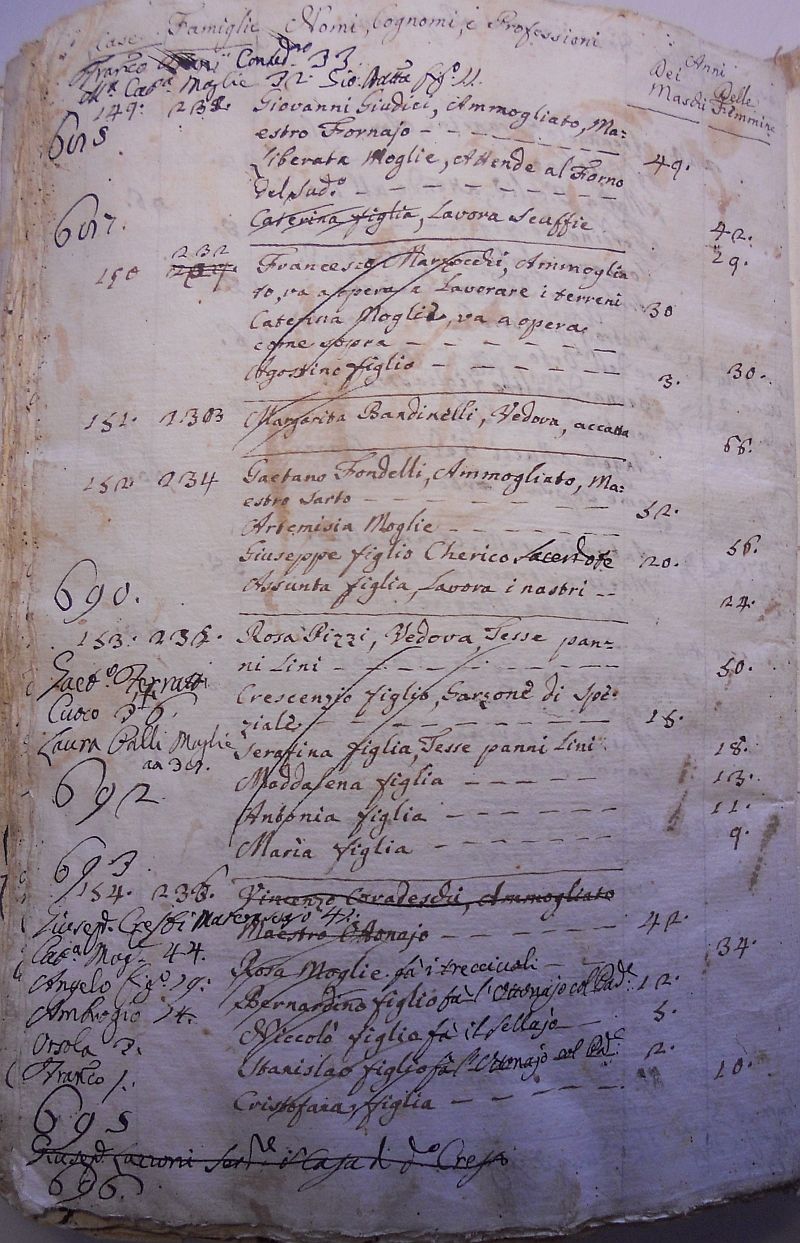 Case Famiglie Nomi, Cognomi, e Professioni
Anni
Dei Maschi Delle Femmine
Franco Contad.no 33
Ma Cat.a Moglie 32. Gio: Batta fig.o 11.
149. 231. Giovanni Giudici, Ammogliato, Ma=
685
estro Fornajo 49.
Liberata Moglie, Attende al Forno
del sud.o 42.
687.
Caterina figlia, Lavora scuffie 29.
150 232 Francesco Marzocchi, Ammoglia
to, va a opera a Lavorare i terreni 30
Caterina Moglie, va a opera
come sopra 30.
Agostino figlio 3.
151. 2303 Margarita Bandinelli, Vedova, accatta 66.
152 234 Gaetano Fondelli, Ammogliato, Ma=
estro sarto 52.
Artemisia Moglie 56.
Giuseppe figlio Cherico Sacerdote 20.
Assunta figlia, Lavora i nastri 24.
690.
153. 235. Rosa Pizzi, Vedova, Tesse pan=
ni Lini 50.
Cuoco 36.
Crescenzio figlio, Garzone di spe=
ziale 15.
Laura Galli Moglie
aa 30.
Serafina figlia, Tesse panni Lini 18.
692
Maddalena figlia 13.
Antonia figlia 11.
Maria figlia 9.
693
154. 236. Vincenzo Coradeschi, Ammogliato
Maestro Ottonajo 42.
Giusep.e Crespi
Cat.a Mog.e 44.
Rosa Moglie fà i trecciuoli 34.
Angelo fig.o 19.
Bernardino figlio fà l'Ottonajo col Pad.e 12.
Ambrogio 14.
Niccolò figlio fà il sellajo 5.
Orsola 3.
Stanislao figlio fà l'Ottonajo col Pad.e 2.
Franco 1.
Cristofana, figlia 10.
695
Giusep.e
696.